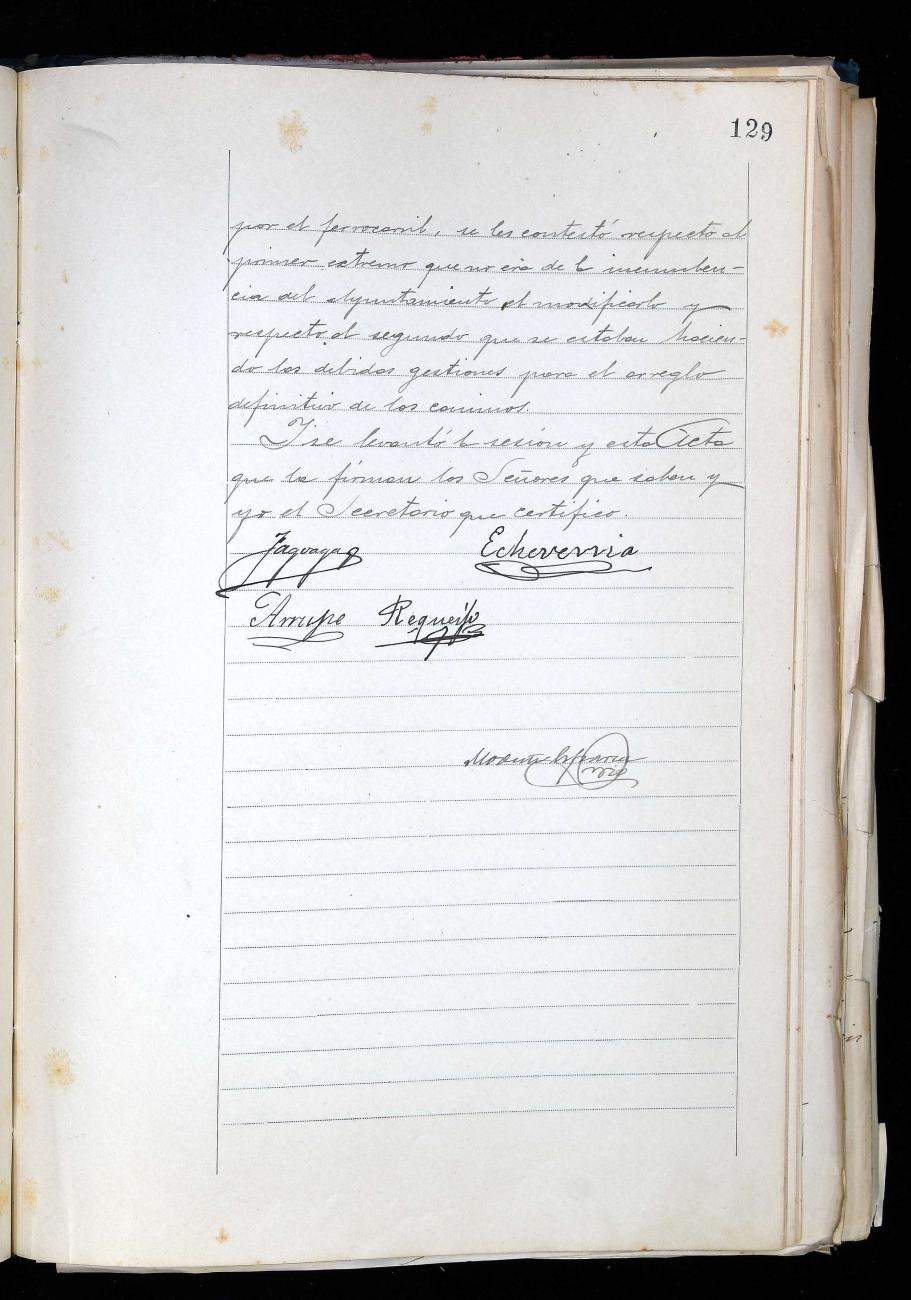 129
por el ferrocarril, se les contestó respecto al
primer extremo que no era de la incumben-
cia del Ayuntamiento el modificarlo y
respecto al segundo que se estaban hacien-
do las debidas gestiones para el arreglo
definitivo de los caminos.
I se levantó la sesión y esta Acta
que la firman los Señores que saben y
yo el Secretario que certifico.
Echeverria
Arrupe Requeijo